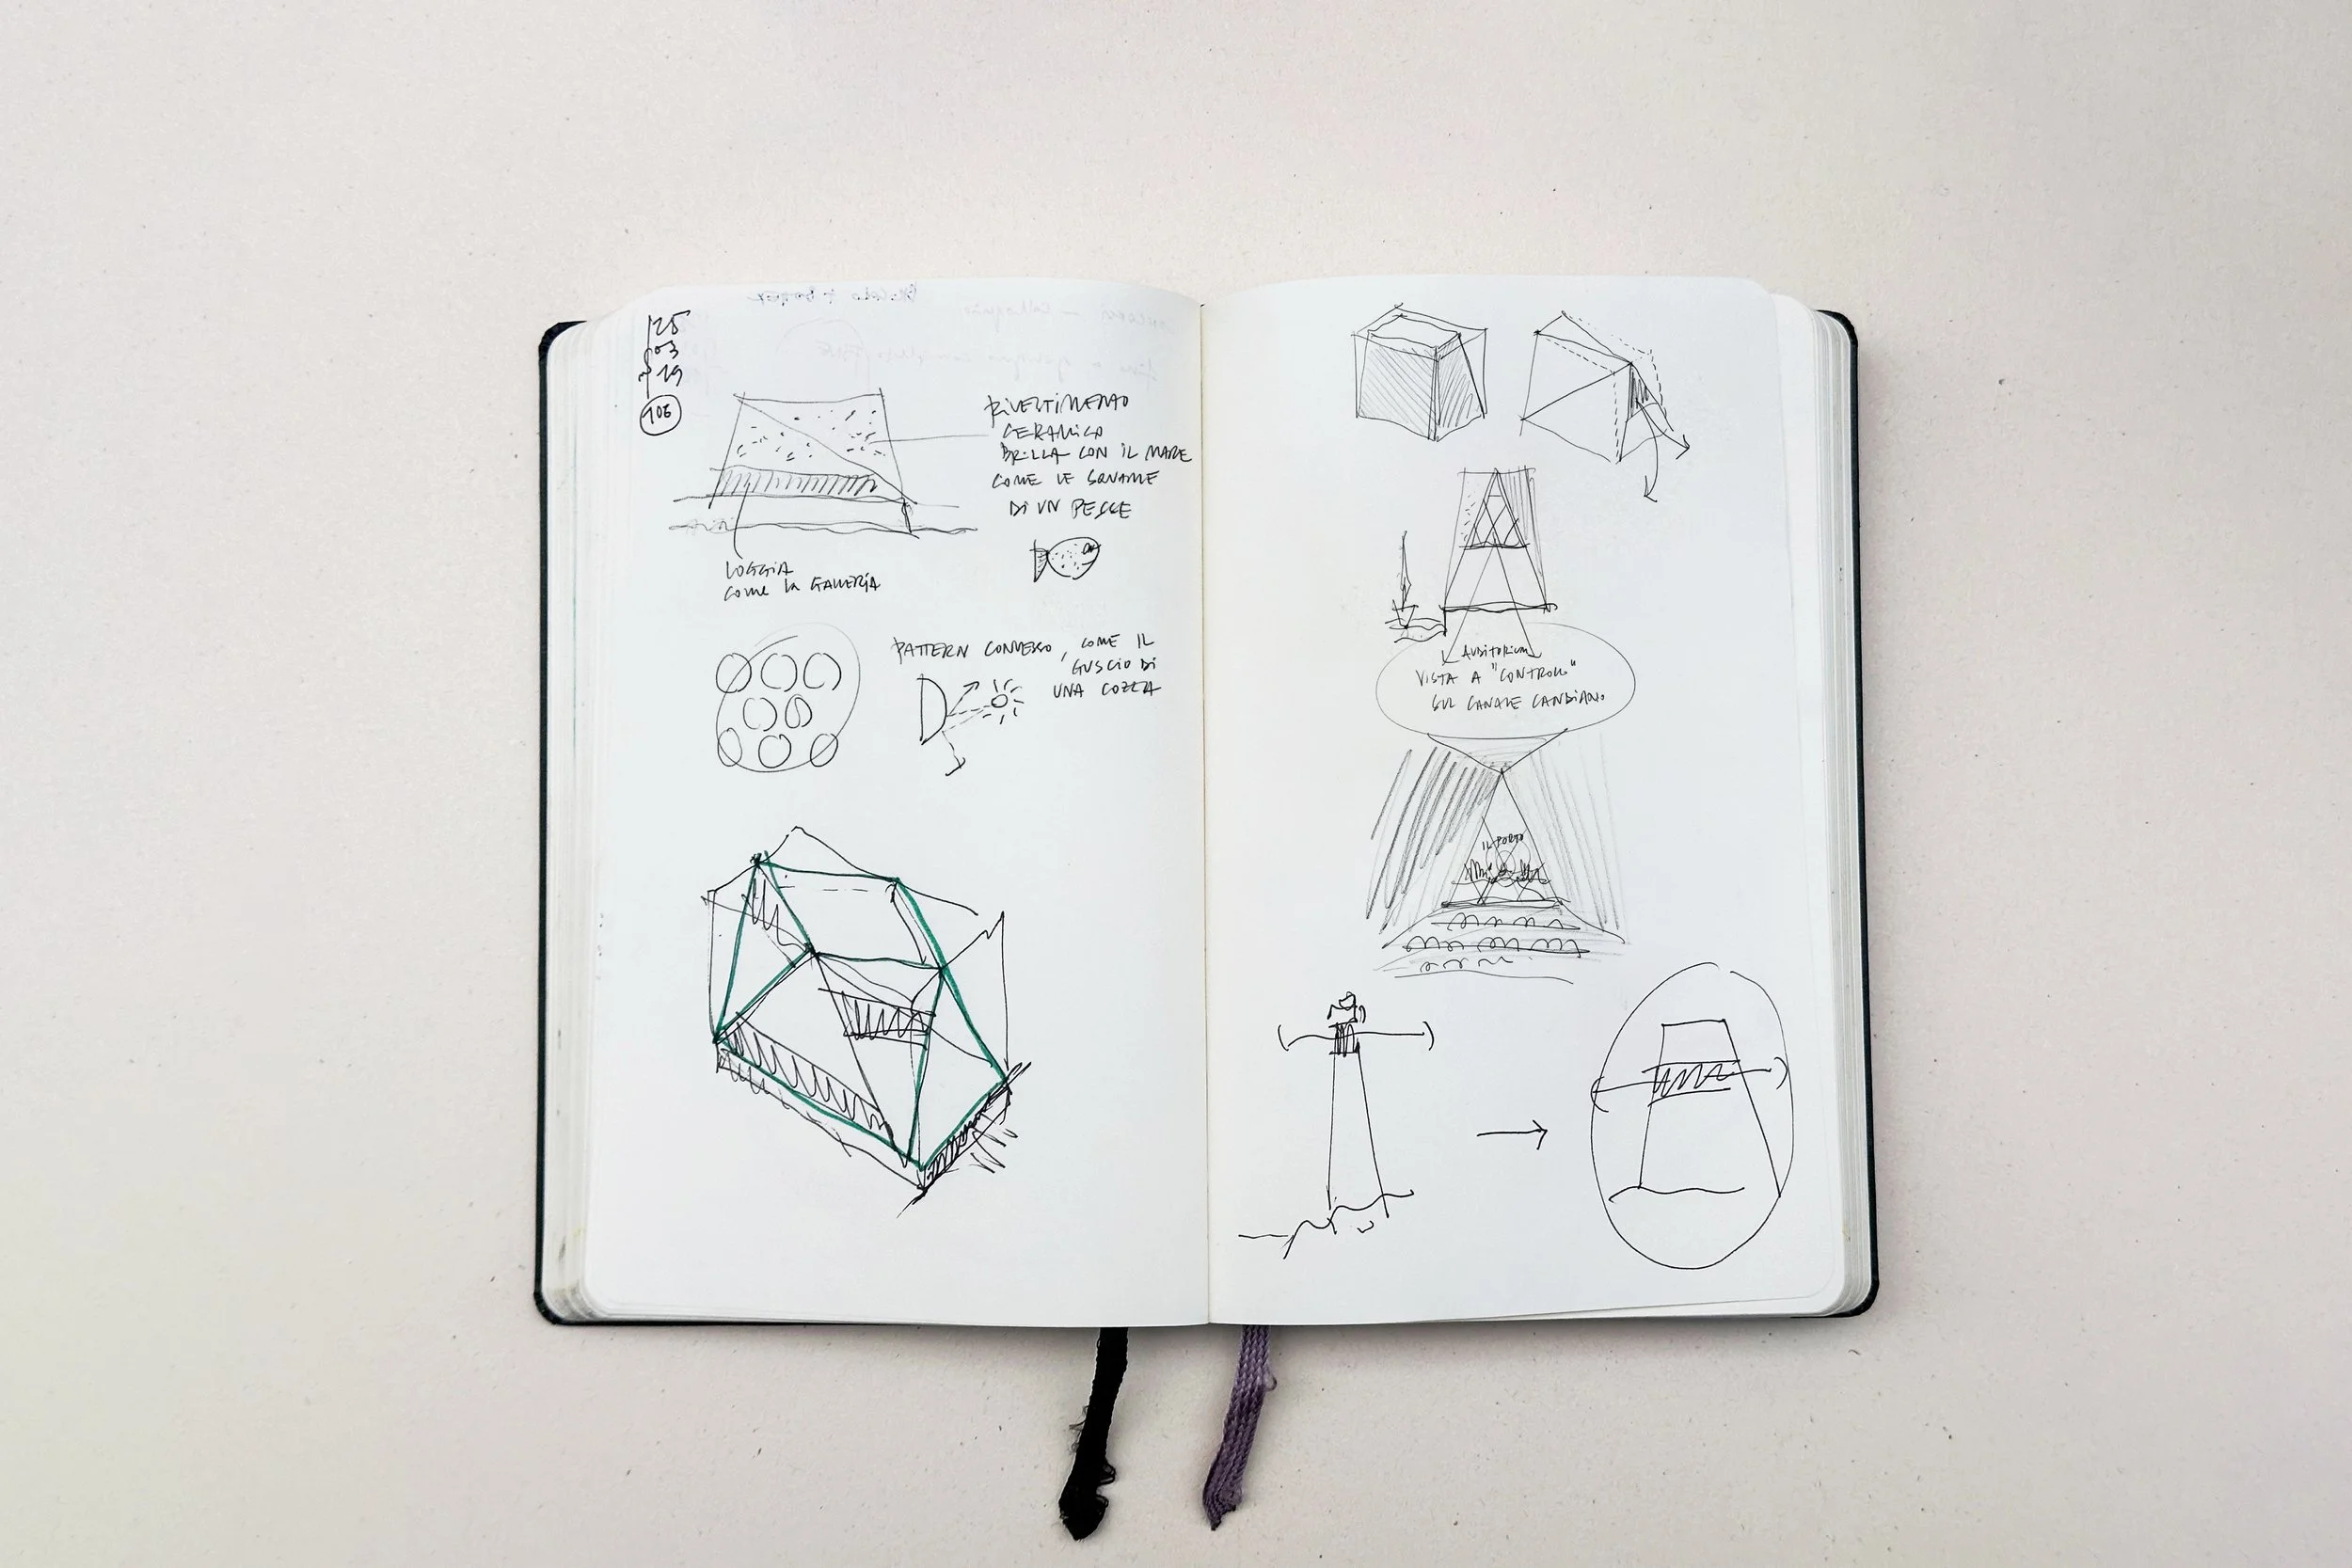 25
03
19
106
RIVESTIMENTO
CERAMICO
BRILLA CON IL MARE
COME LE SQUAME
DI UN PESCE
LOGGIA
COME LA GALLERIA
PATTERN CONVESSO, COME IL
GUSCIO DI
UNA COZZA
AUDITORIUM
VISTA A "CONTROLLO"
SUL CANALE CANDIANO
IL PORTO